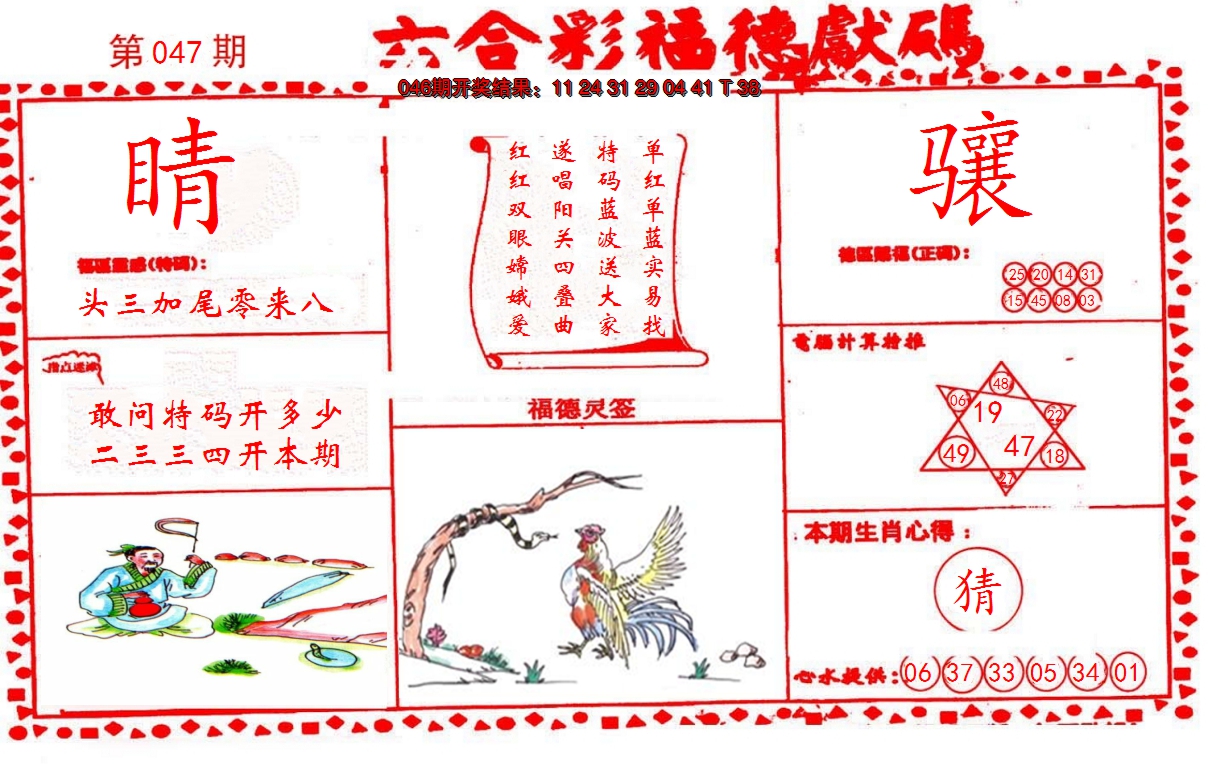 第 047 期
六合彩福德獻碼
046期开奖结果：11 24 31 29 04 41 T 38
睛
福區靈感(特碼)：
头三加尾零来八
指点迷津
敢问特码开多少
二三三四开本期
单红单蓝实易找
特码蓝波送大家
遂唱阳关四叠曲
红红双眼嫦娥爱
福德灵签
骧
德區賜福(正碼)：
25 20 14 31
15 45 08 03
電腦計算拾推
48
06 19 22
49 47 18
27
本期生肖心得：
猜
心水提供：06 37 33 05 34 01